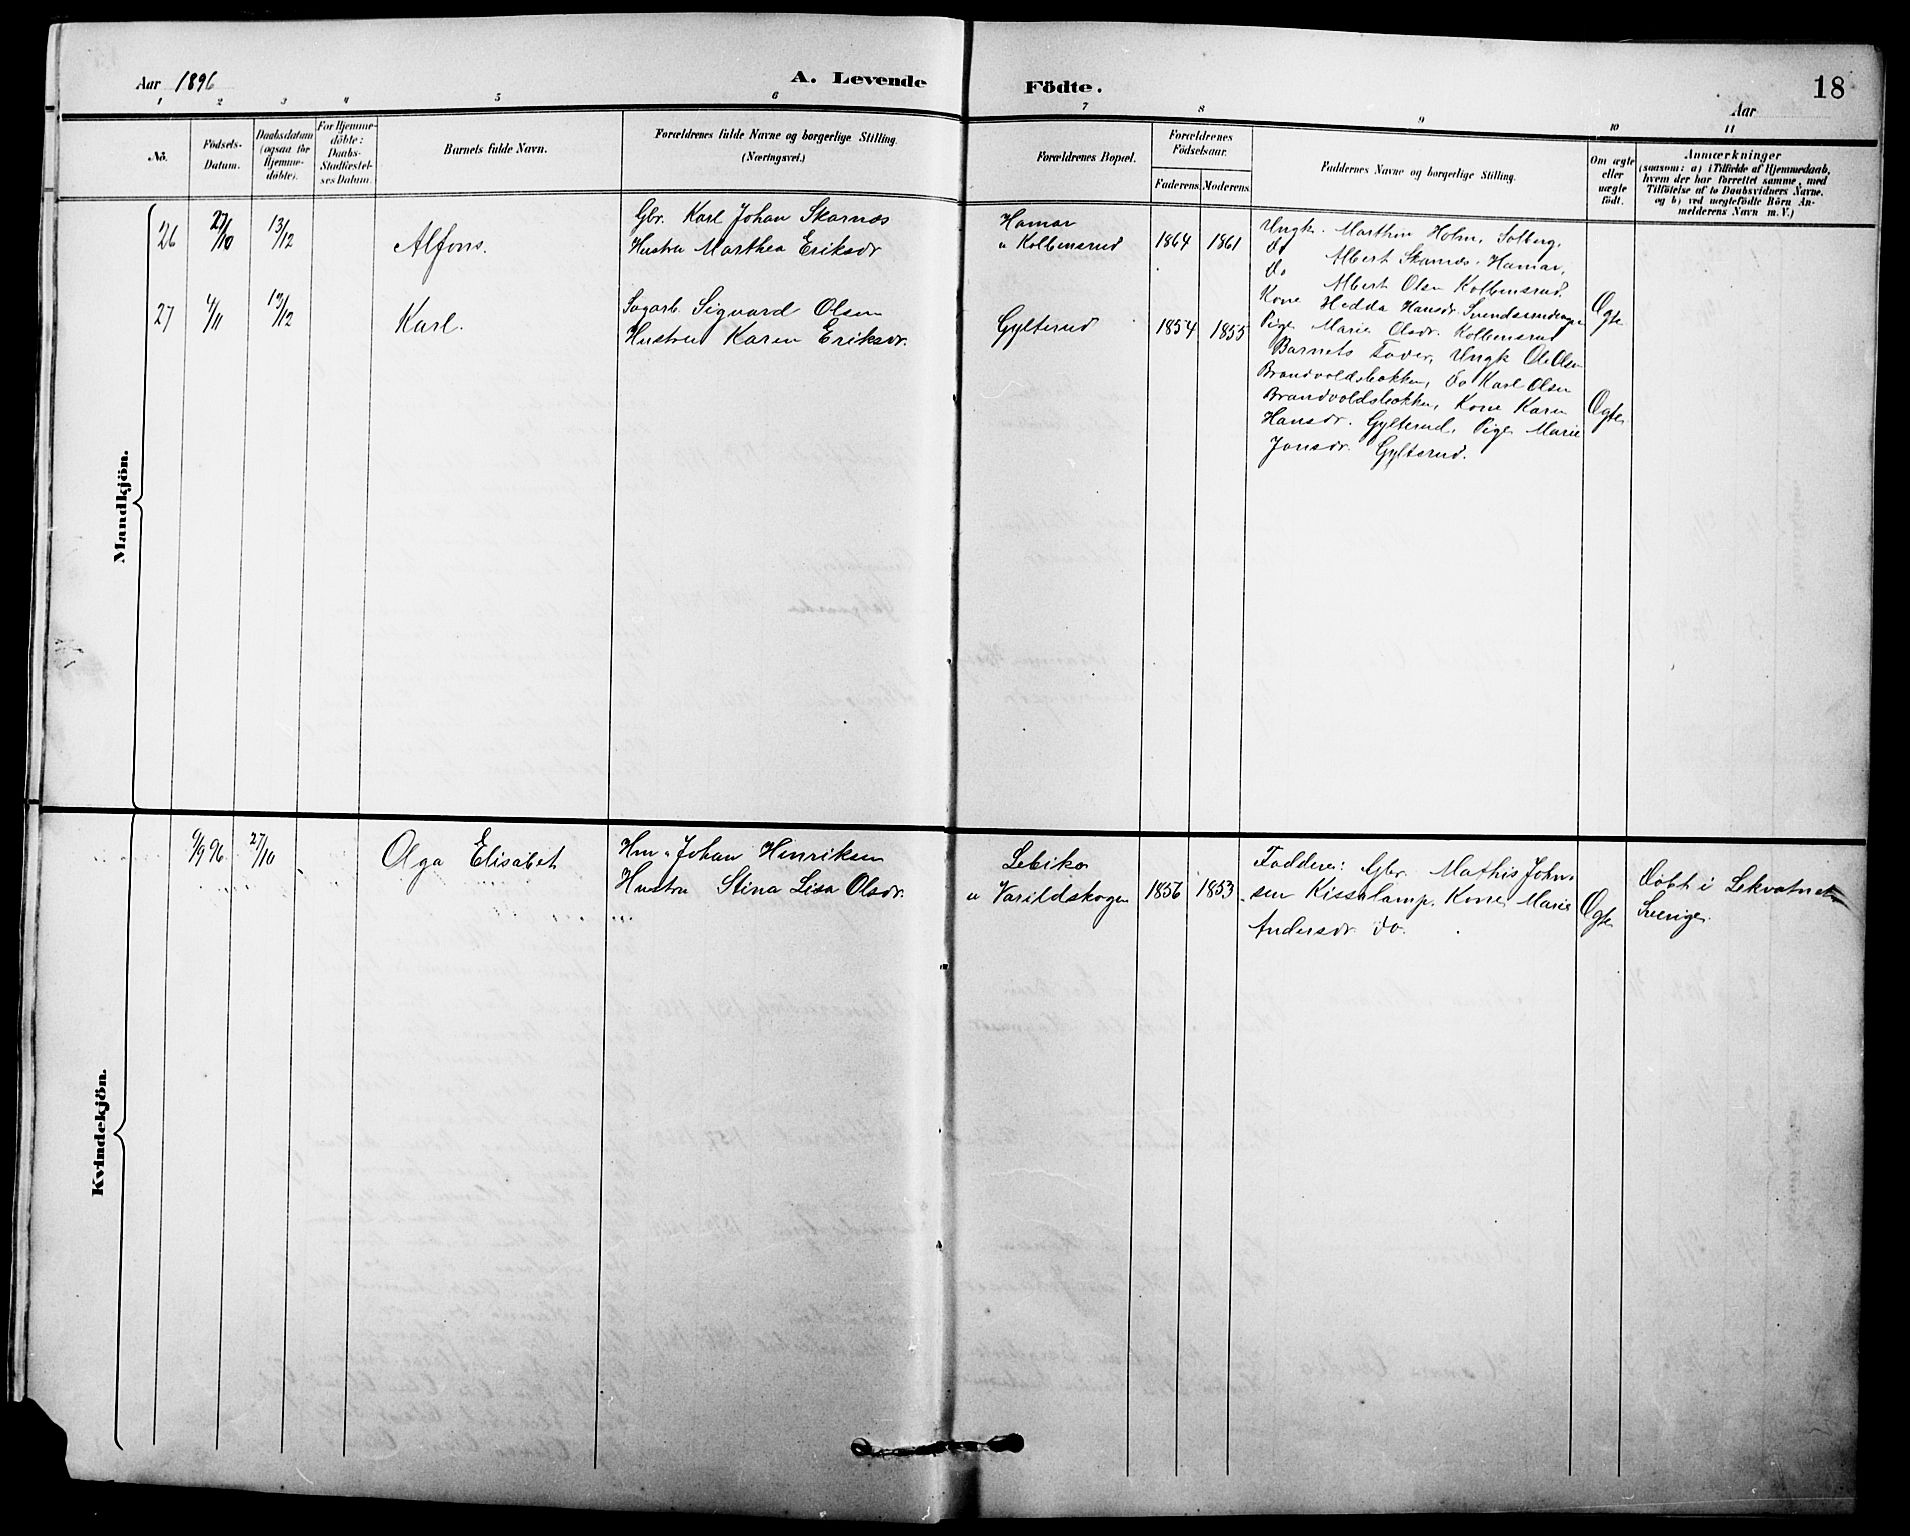 Aar 1896
A. Levende Födte.
18
Aar
1 2 3 4 5 6 7 8 9 10 11
No.
Födsels-
Datum.
Daabsdatum
(ogsaa for
Hjemme-
döbte).
For Hjemme-
döbte:
Daabs-
Stadfæstel-
ses Datum.
Barnets fulde Navn.
Forældrenes fulde Navne og borgerlige Stilling.
(Næringsvei.)
Forældrenes Bopæl.
Forældrenes
Födselsaar.
Faderens Moderens
Faddernes Navne og borgerlige Stilling.
Om ægte
eller
uægte
födt.
Anmærkninger
(saasom: a) i Tilfælde af Hjemmedaab,
hvem der har forrettet samme, med
Tilföielse af to Daabsvidners Navne,
og b) ved uægtefödte Börn An-
melderens Navn m. V.)
Mandkjön.
26
27/10
13/12
Alfons.
Gbr. Karl Johan Skarnæs
Hustru Marthea Eriksdr
Hamar
u Kolbensrud
1864
1861
Ungk. Marthin Holm, Solberg,
do Albert Skarnæs, Hamar,
do Albert Olsen Kolbensrud.
Kone Hedda Hansdr
Pige Marie Olsdr. Kolbensrud
Ægte
27
4/11
13/12
Karl.
Sagarb. Sigvard Olsen
Hustru Karen Eriksdr.
Gylterud
1854
1855
Barnets Fader, Ungk Ole Olsen
Brandvoldsbakken, do Karl Olsen
Brandvoldsbakken, Kone Karen
Hansdr. Gylterud, Pige Marie
Jonsdr. Gylterud.
Ægte
Kvindekjön.
9/9 96
27/10
Olga Elisabet
Hm. Johan Henriksen
Hustru Stina Lisa Olsdr.
Lebiko
u Varildskogen
1856
1853
Faddere: Gbr. Mathis John-
sen Kissalamp. Kone Marie
Andersdr. do.
Ægte
Döbt i Lekvatnet
Sverige.